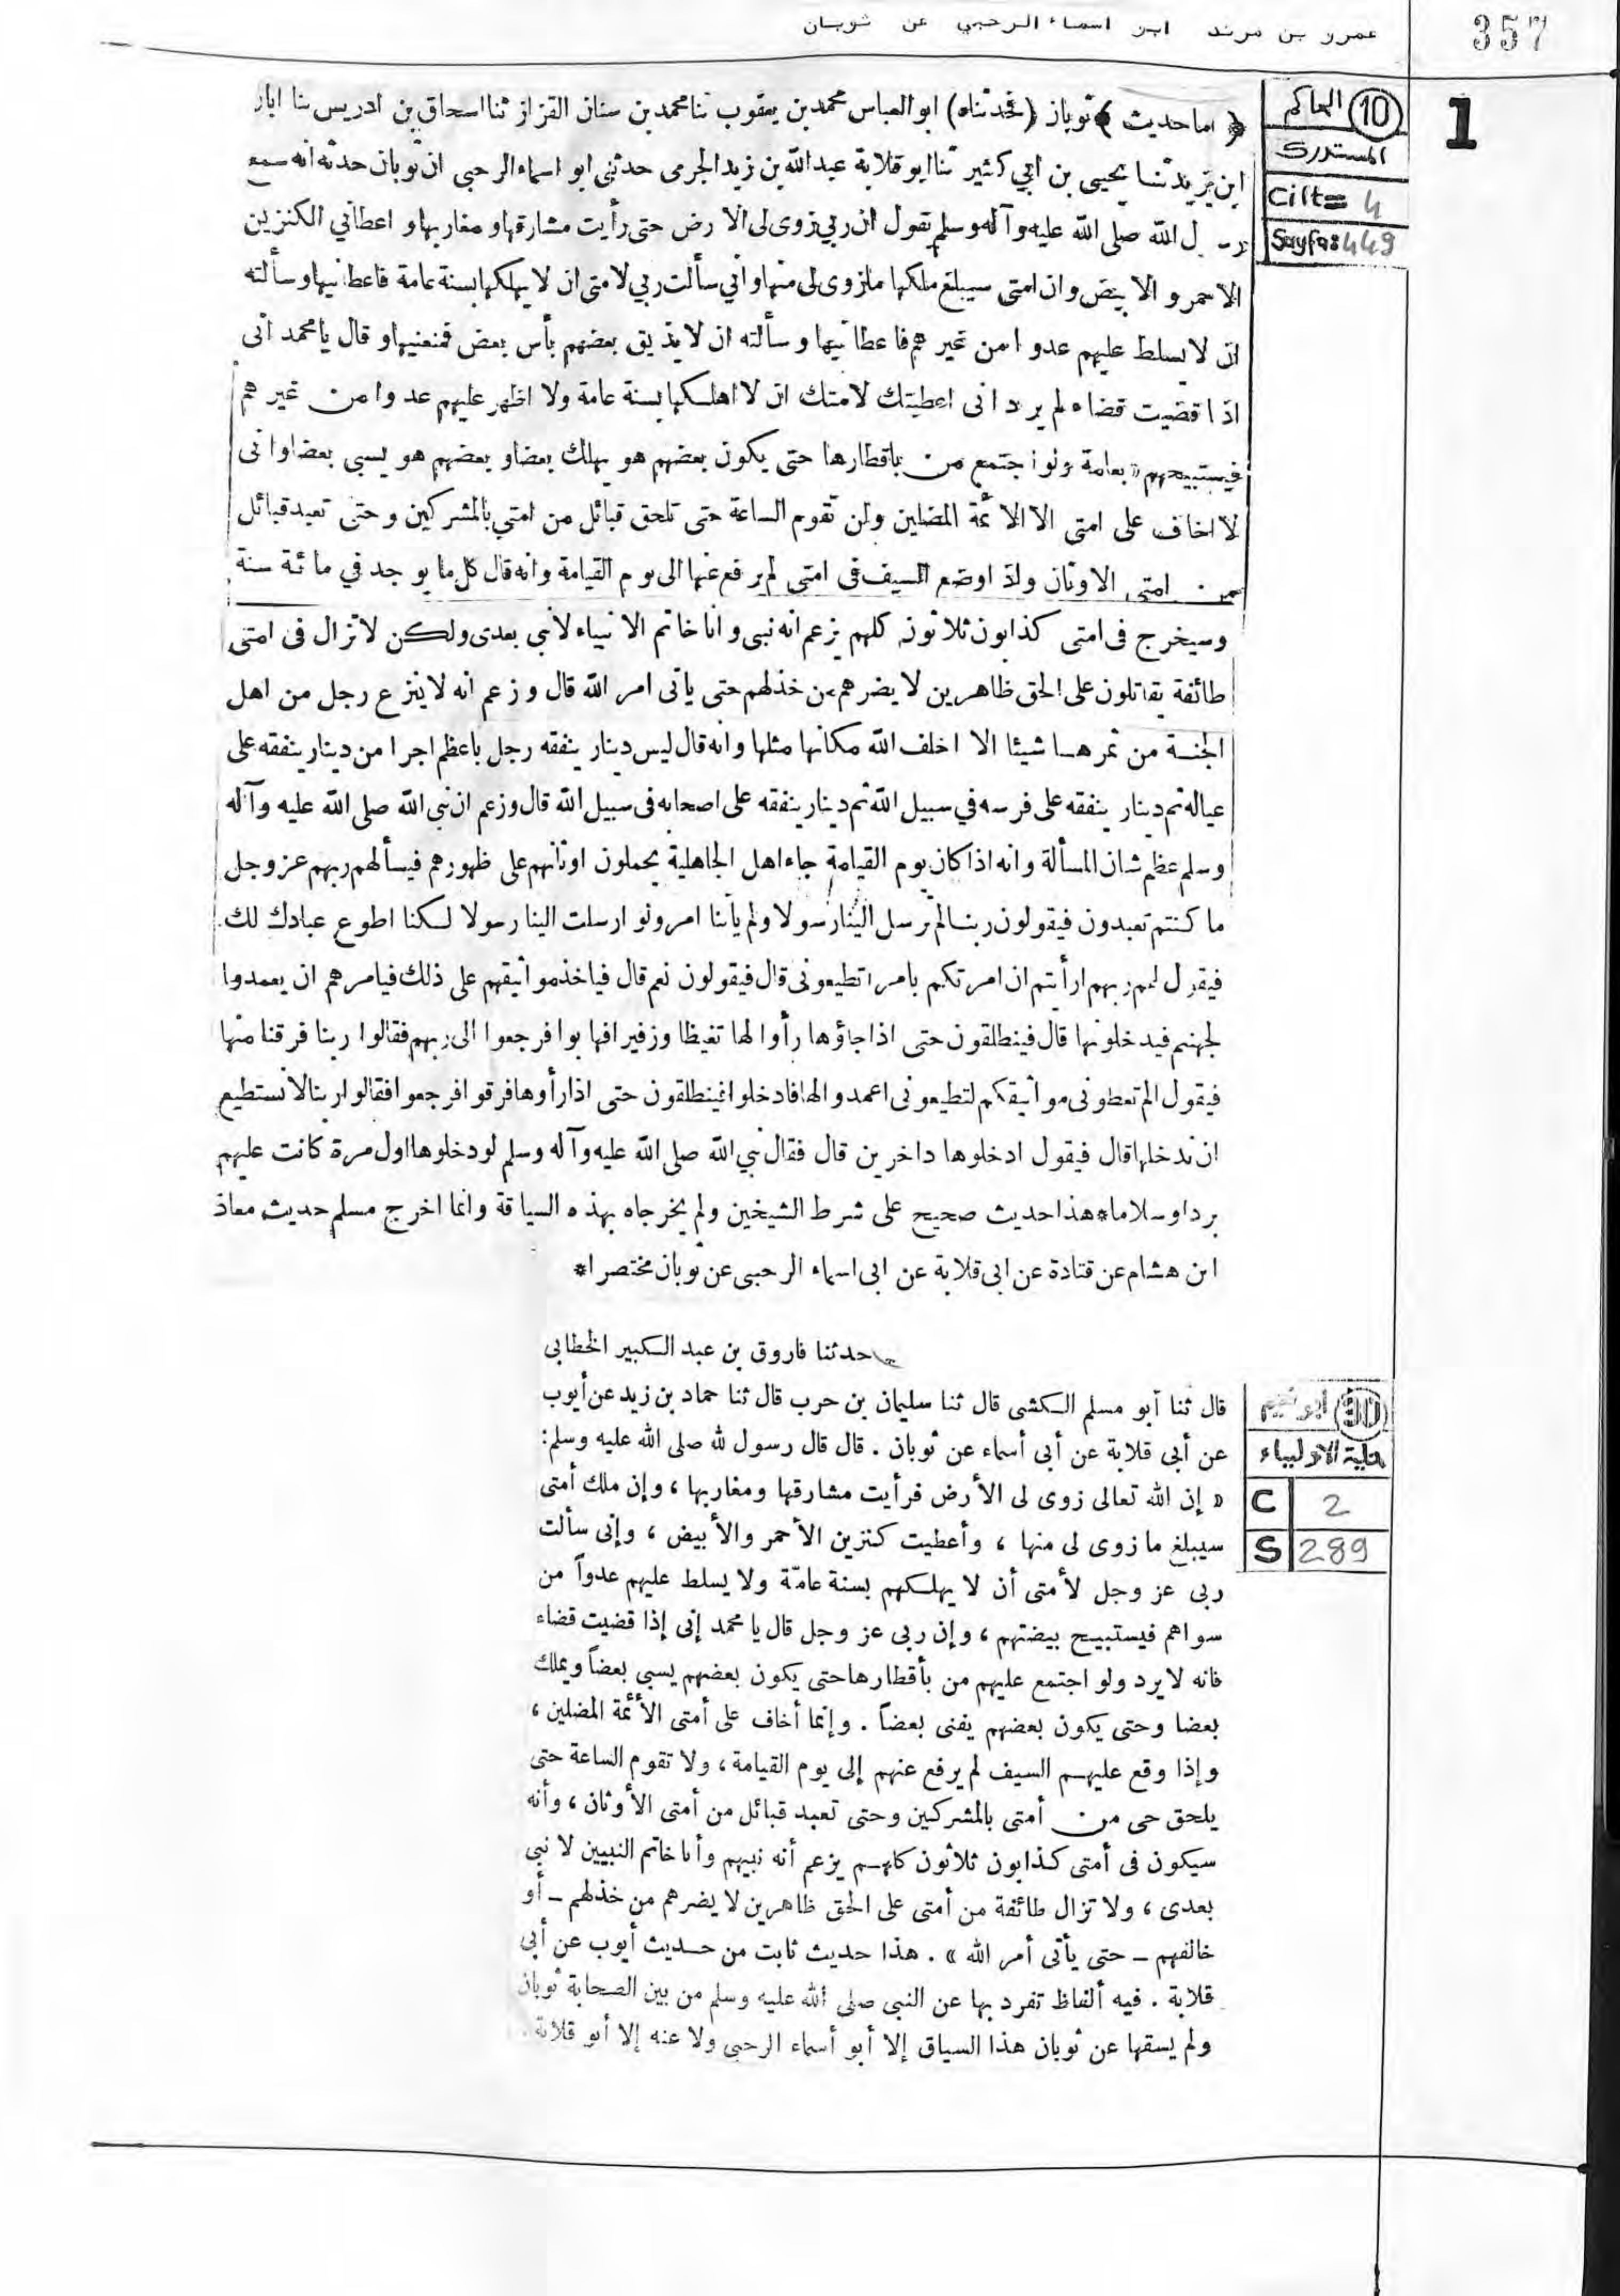 عمرو بن مرثد ابو اسماء الرحبي عن ثوبان
357
1
10 الحاكم
المستدرك
Cilt= 4
Sayfa: 449
﴿ اما حديث ﴾ ثوبان (فحدثناه) ابو العباس محمد بن يعقوب ثنا محمد بن سنان القزاز ثنا اسحاق بن ادريس ثنا ابان
ابن يزيد ثنا يحيى بن ابي كثير ثنا ابو قلابة عبد الله بن زيد الجرمى حدثنى ابو اسماء الرحبى ان ثوبان حدثه انه سمع
رسول الله صلى الله عليه وآله وسلم يقول ان ربي زوى لى الارض حتى رأيت مشارقها ومغاربها واعطاني الكنزين
الاحمر والابيض وان امتى سيبلغ ملكها ما زوى لى منها واني سألت ربي لامتى ان لا يهلكها بسنة عامة فاعطانيها وسألته
ان لا يسلط عليهم عدوا من غيرهم فاعطانيها وسألته ان لا يذيق بعضهم بأس بعض فمنعنيها وقال يا محمد انى
اذا قضيت قضاء لم يرد انى اعطيتك لامتك ان لا اهلكها بسنة عامة ولا اظهر عليهم عدوا من غيرهم
فيستبيحهم بعامة ولو اجتمع من باقطارها حتى يكون بعضهم هو يهلك بعضا وبعضهم هو يسبى بعضا وانى
لا اخاف على امتى الا الائمة المضلين ولن تقوم الساعة حتى تلحق قبائل من امتي بالمشركين وحتى تعبد قبائل
من امتى الاوثان واذا وضع السيف فى امتى لم يرفع عنها الى يوم القيامة وانه قال كل ما يوجد في مائة سنة
وسيخرج فى امتى كذابون ثلاثون كلهم يزعم انه نبى وانا خاتم الانبياء لا نبي بعدى ولكن لا تزال فى امتى
طائفة يقاتلون على الحق ظاهرين لا يضرهم من خذلهم حتى يأتى امر الله قال وزعم انه لا ينزع رجل من اهل
الجنة من ثمرها شيئا الا اخلف الله مكانها مثلها وانه قال ليس دينار ينفقه رجل باعظم اجرا من دينار ينفقه على
عياله ثم دينار ينفقه على فرسه في سبيل الله ثم دينار ينفقه على اصحابه فى سبيل الله قال وزعم ان نبي الله صلى الله عليه وآله
وسلم عظم شان المسألة وانه اذا كان يوم القيامة جاء اهل الجاهلية يحملون اوثانهم على ظهورهم فيسألهم ربهم عز وجل
ما كنتم تعبدون فيقولون ربنا لم ترسل الينا رسولا ولم يأتنا امر ولو ارسلت الينا رسولا لكنا اطوع عبادك لك
فيقول لهم ربهم ارأيتم ان امرتكم بامر اتطيعونى قال فيقولون نعم قال فياخذ مواثيقهم على ذلك فيامرهم ان يعمدوا
لجهنم فيدخلونها قال فينطلقون حتى اذا جاؤها رأوا لها تغيظا وزفيرا فهابوا فرجعوا الى ربهم فقالوا ربنا فرقنا منها
فيقول الم تعطونى مواثيقكم لتطيعونى اعمدوا لها فادخلوا فينطلقون حتى اذا رأوها فرقوا فرجعوا فقالوا ربنا لا نستطيع
ان ندخلها قال فيقول ادخلوها داخرين قال فقال نبي الله صلى الله عليه وآله وسلم لو دخلوها اول مرة كانت عليهم
بردا وسلاما * هذا حديث صحيح على شرط الشيخين ولم يخرجاه بهذه السياقة وانما اخرج مسلم حديث معاذ
ابن هشام عن قتادة عن ابى قلابة عن ابى اسماء الرحبى عن ثوبان مختصرا *
حدثنا فاروق بن عبد الكبير الخطابى
30 ابو نعيم
حلية الاولياء
C 2
S 289
قال ثنا أبو مسلم الكشى قال ثنا سليمان بن حرب قال ثنا حماد بن زيد عن أيوب
عن أبى قلابة عن أبى أسماء عن ثوبان . قال قال رسول لله صلى الله عليه وسلم :
« إن الله تعالى زوى لى الأرض فرأيت مشارقها ومغاربها ، وإن ملك أمتى
سيبلغ ما زوى لى منها ، وأعطيت كنزين الأحمر والأبيض ، وإنى سألت
ربى عز وجل لأمتى أن لا يهلكهم بسنة عامّة ولا يسلط عليهم عدواً من
سواهم فيستبيح بيضتهم ، وإن ربى عز وجل قال يا محمد إنى إذا قضيت قضاء
فانه لا يرد ولو اجتمع عليهم من بأقطارها حتى يكون بعضهم يسبى بعضاً ويهلك
بعضا وحتى يكون بعضهم يفنى بعضاً . وإنما أخاف على أمتى الأئمة المضلين ،
وإذا وقع عليهم السيف لم يرفع عنهم إلى يوم القيامة ، ولا تقوم الساعة حتى
يلحق حى من أمتى بالمشركين وحتى تعبد قبائل من أمتى الأوثان ، وأنه
سيكون فى أمتى كذابون ثلاثون كلهم يزعم أنه نبيهم وأنا خاتم النبيين لا نبى
بعدى ، ولا تزال طائفة من أمتى على الحق ظاهرين لا يضرهم من خذلهم – أو
خالفهم – حتى يأتى أمر الله » . هذا حديث ثابت من حديث أيوب عن أبى
قلابة . فيه ألفاظ تفرد بها عن النبى صلى الله عليه وسلم من بين الصحابة ثوبان
ولم يسقها عن ثوبان هذا السياق إلا أبو أسماء الرحبى ولا عنه إلا أبو قلابة .